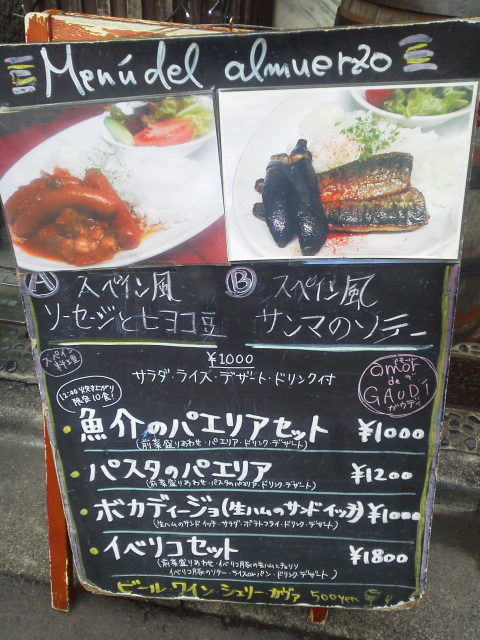 Menú del almuerzo
Ⓐ スペイン風
ソーセージとヒヨコ豆
Ⓑ スペイン風
サンマのソテー
¥1000
サラダ・ライス・デザート・ドリンク付
スペイン料理
アモール
amor
デ
de
GAUDÍ
ガウディ
12:00 炊き上がり
限定10食!
・魚介のパエリアセット ¥1000
(前菜盛りあわせ・パエリア・ドリンク・デザート)
・パスタのパエリア ¥1200
(前菜盛りあわせ・パスタのパエリア・ドリンク・デザート)
・ボカディージョ(生ハムのサンドイッチ) ¥1000
(生ハムのサンドイッチ・サラダ・ポテトフライ・ドリンク・デザート)
・イベリコセット ¥1800
(前菜盛りあわせ・イベリコ豚の生ハムとチョリソ
イベリコ豚のソテー・ライスorパン・ドリンク・デザート)
ビール ワイン・シェリー・カヴァ 500yen